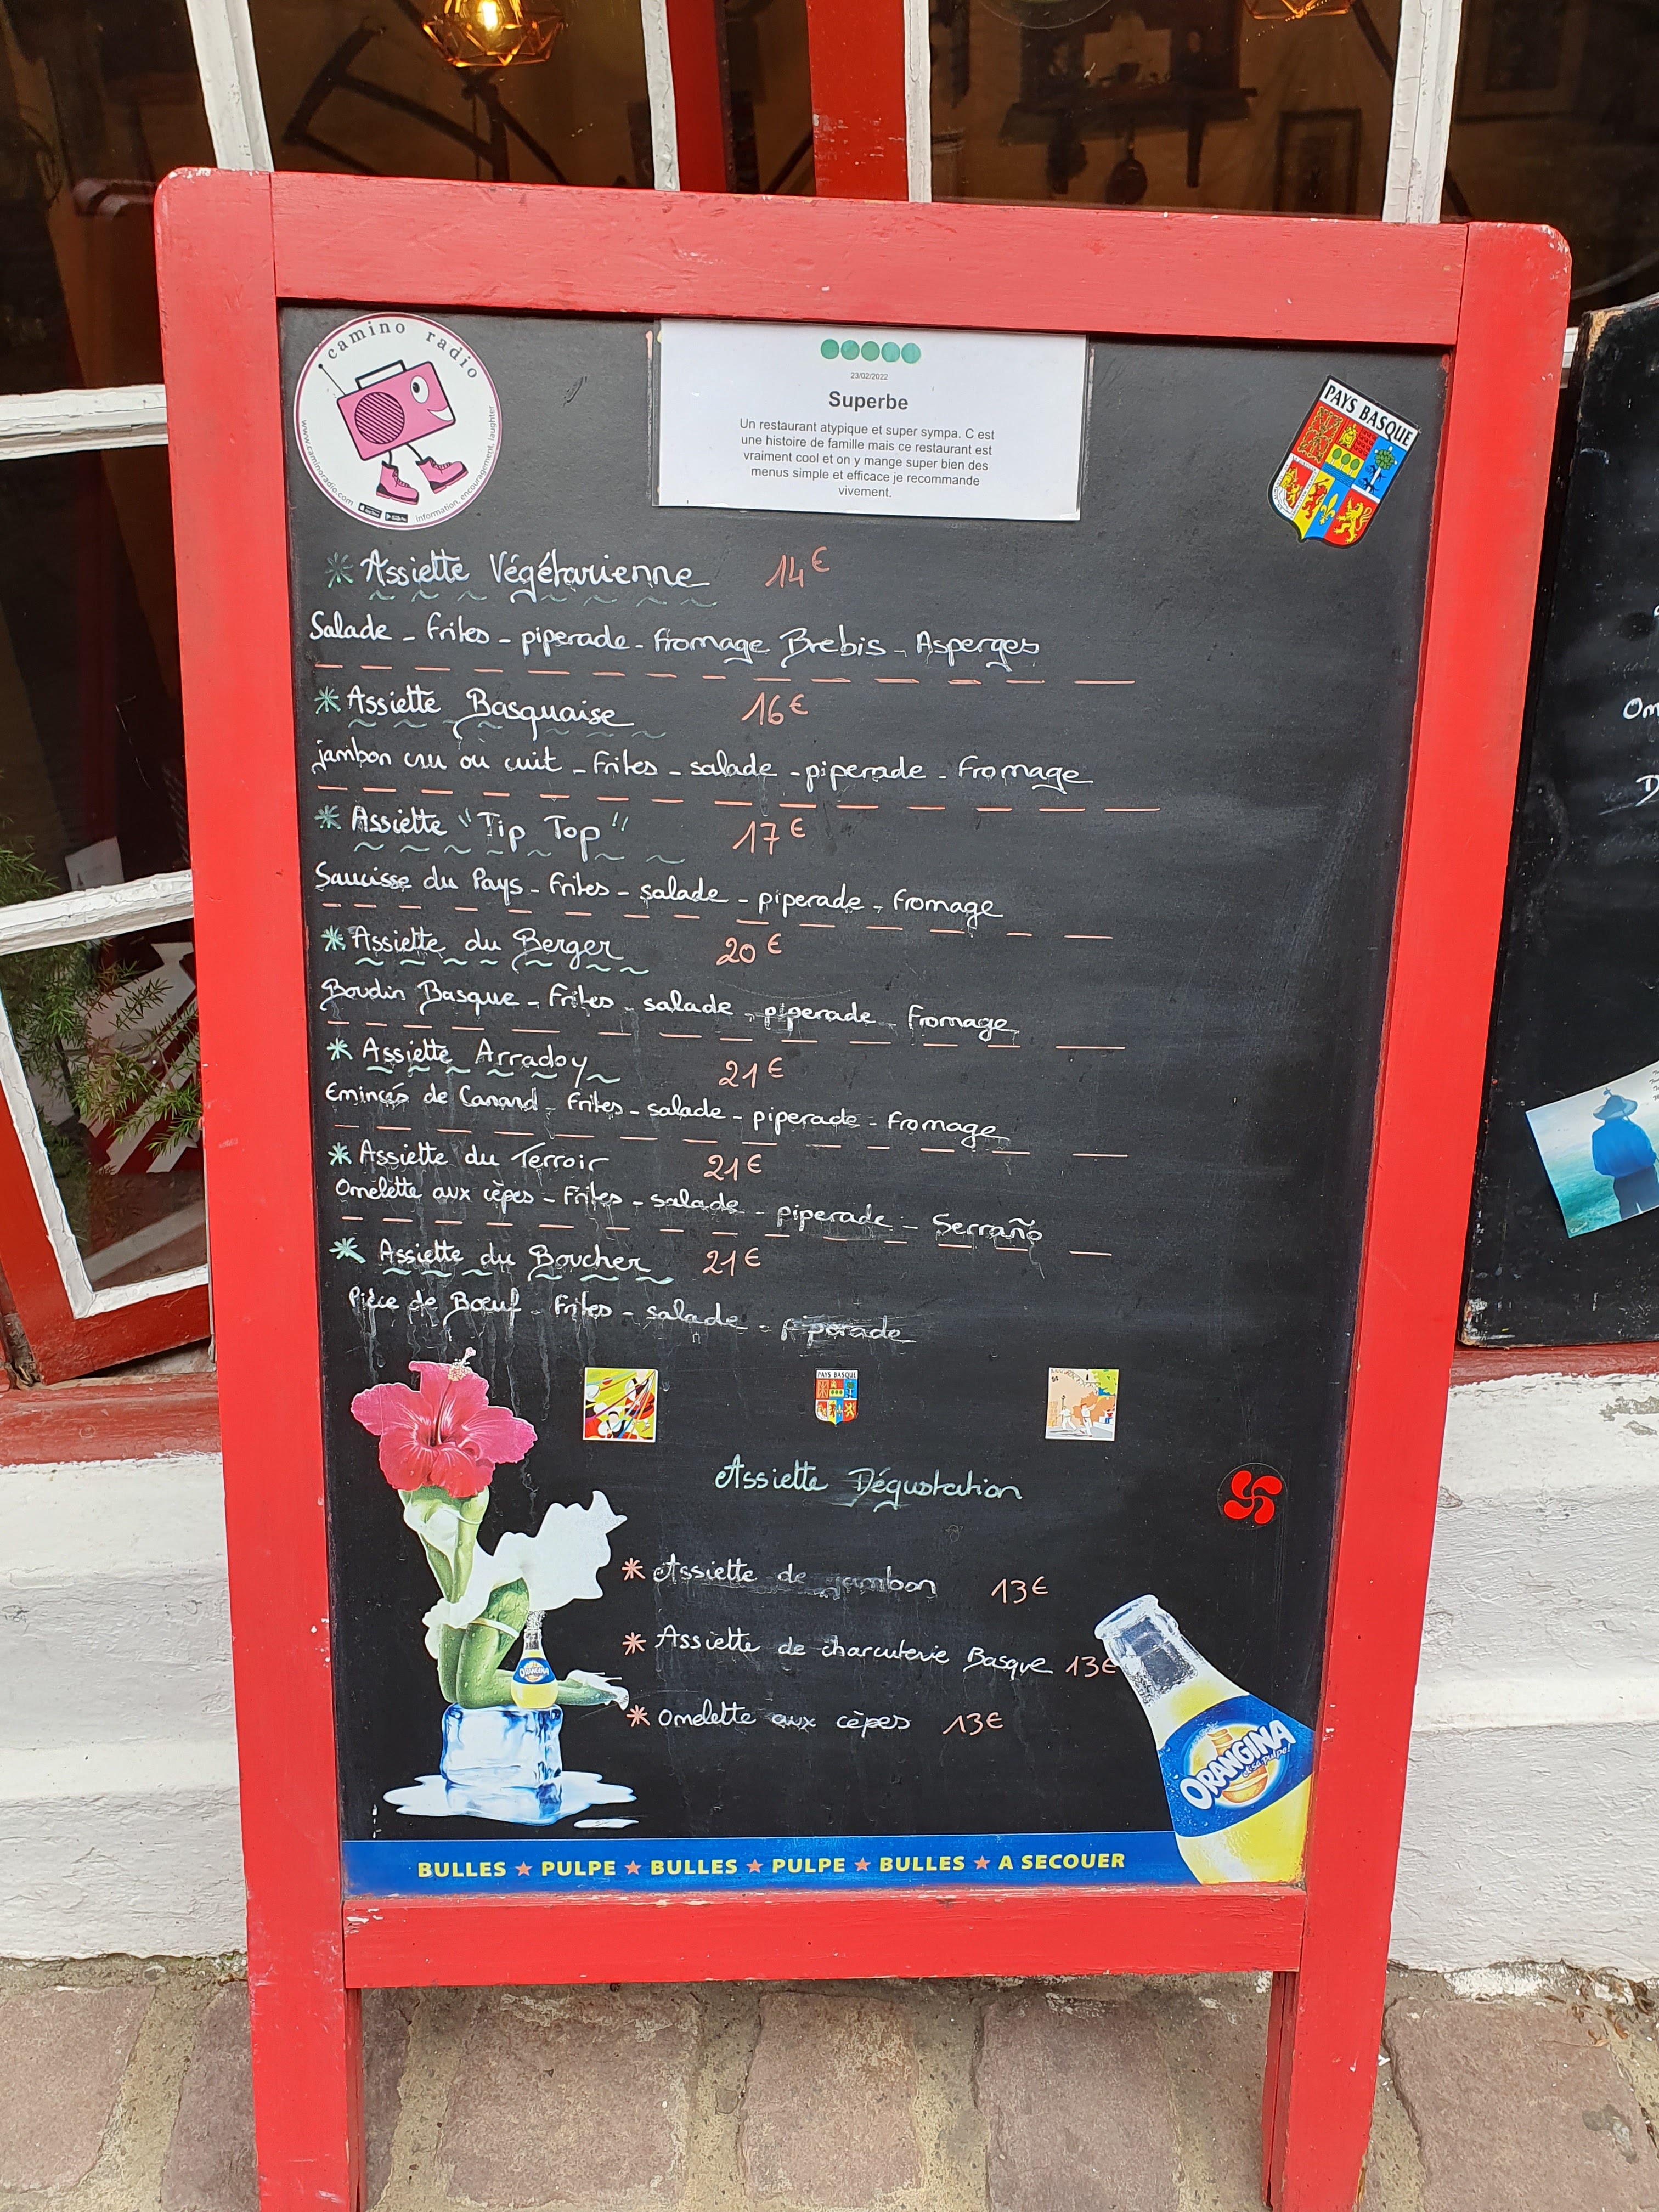 camino radio
www.caminoradio.com
information, encouragement, laughter
23/02/2022
Superbe
Un restaurant atypique et super sympa. C est
une histoire de famille mais ce restaurant est
vraiment cool et on y mange super bien des
menus simple et efficace je recommande
vivement.
PAYS BASQUE
* Assiette Végétarienne 14€
Salade - frites - piperade - fromage Brebis - Asperges
* Assiette Basquaise 16€
jambon cru ou cuit - frites - salade - piperade - fromage
* Assiette "Tip Top" 17€
Saucisse du Pays - frites - salade - piperade - fromage
* Assiette du Berger 20€
Boudin Basque - frites - salade - piperade - fromage
* Assiette Arradoy 21€
Emincés de Canard - frites - salade - piperade - fromage
* Assiette du Terroir 21€
Omelette aux cèpes - frites - salade - piperade - Serraño
* Assiette du Boucher 21€
Pièce de Bœuf - frites - salade - piperade
PAYS BASQUE
Assiette Dégustation
* Assiette de jambon 13€
* Assiette de charcuterie Basque 13€
* omelette aux cèpes 13€
ORANGINA
ORANGINA
et sa pulpe!
BULLES ★ PULPE ★ BULLES ★ PULPE ★ BULLES ★ A SECOUER